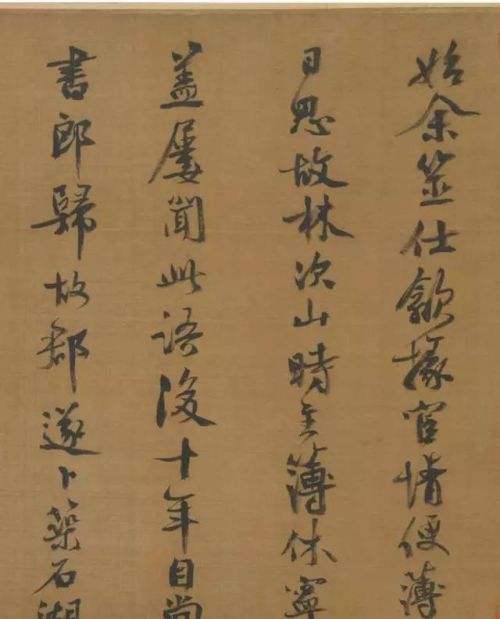 始余筮仕歙掾宦情便薄
日思故林次山時主簿休寧
盖屢聞此語後十年自尚
書郎歸故郡遂卜築石湖